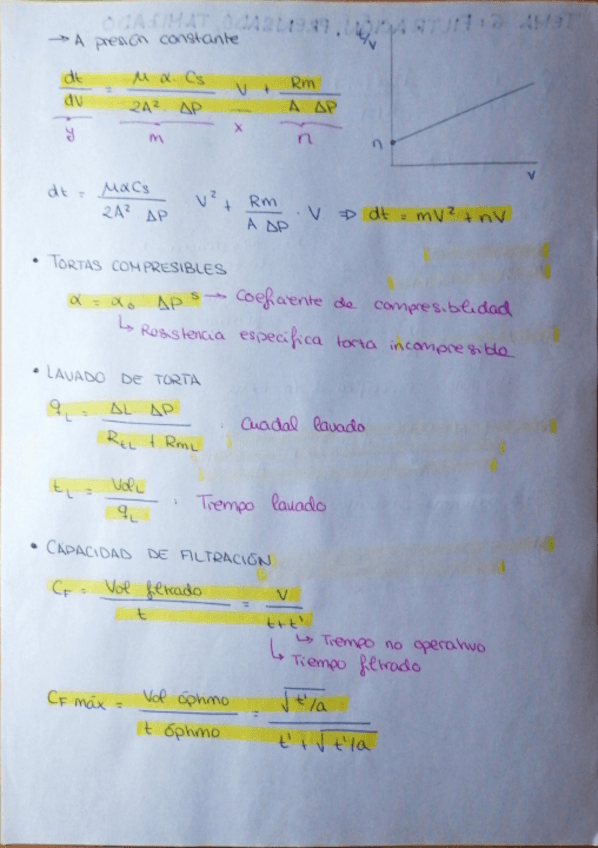 → A presión constante
dt/dV = μ α. Cs / 2A². ΔP V + Rm / A ΔP
y m x n
t/V
n
V
dt = μαCs / 2A² ΔP V² + Rm / A ΔP . V ⇒ dt = mV² + nV
• TORTAS COMPRESIBLES
α = α₀ ΔP^s → Coeficiente de compresibilidad
↳ Resistencia especifica torta incompresible
• LAVADO DE TORTA
q_L = ΔL. ΔP / R_tL + Rm_L . Caudal lavado
t_L = Vol_L / q_L . Tiempo lavado
• CAPACIDAD DE FILTRACIÓN
C_F = Vol filtrado / t = V / t+t'
↳ Tiempo no operativo
↳ Tiempo filtrado
C_F máx = Vol óptimo / t óptimo = √t'/a / t' + √t'/a